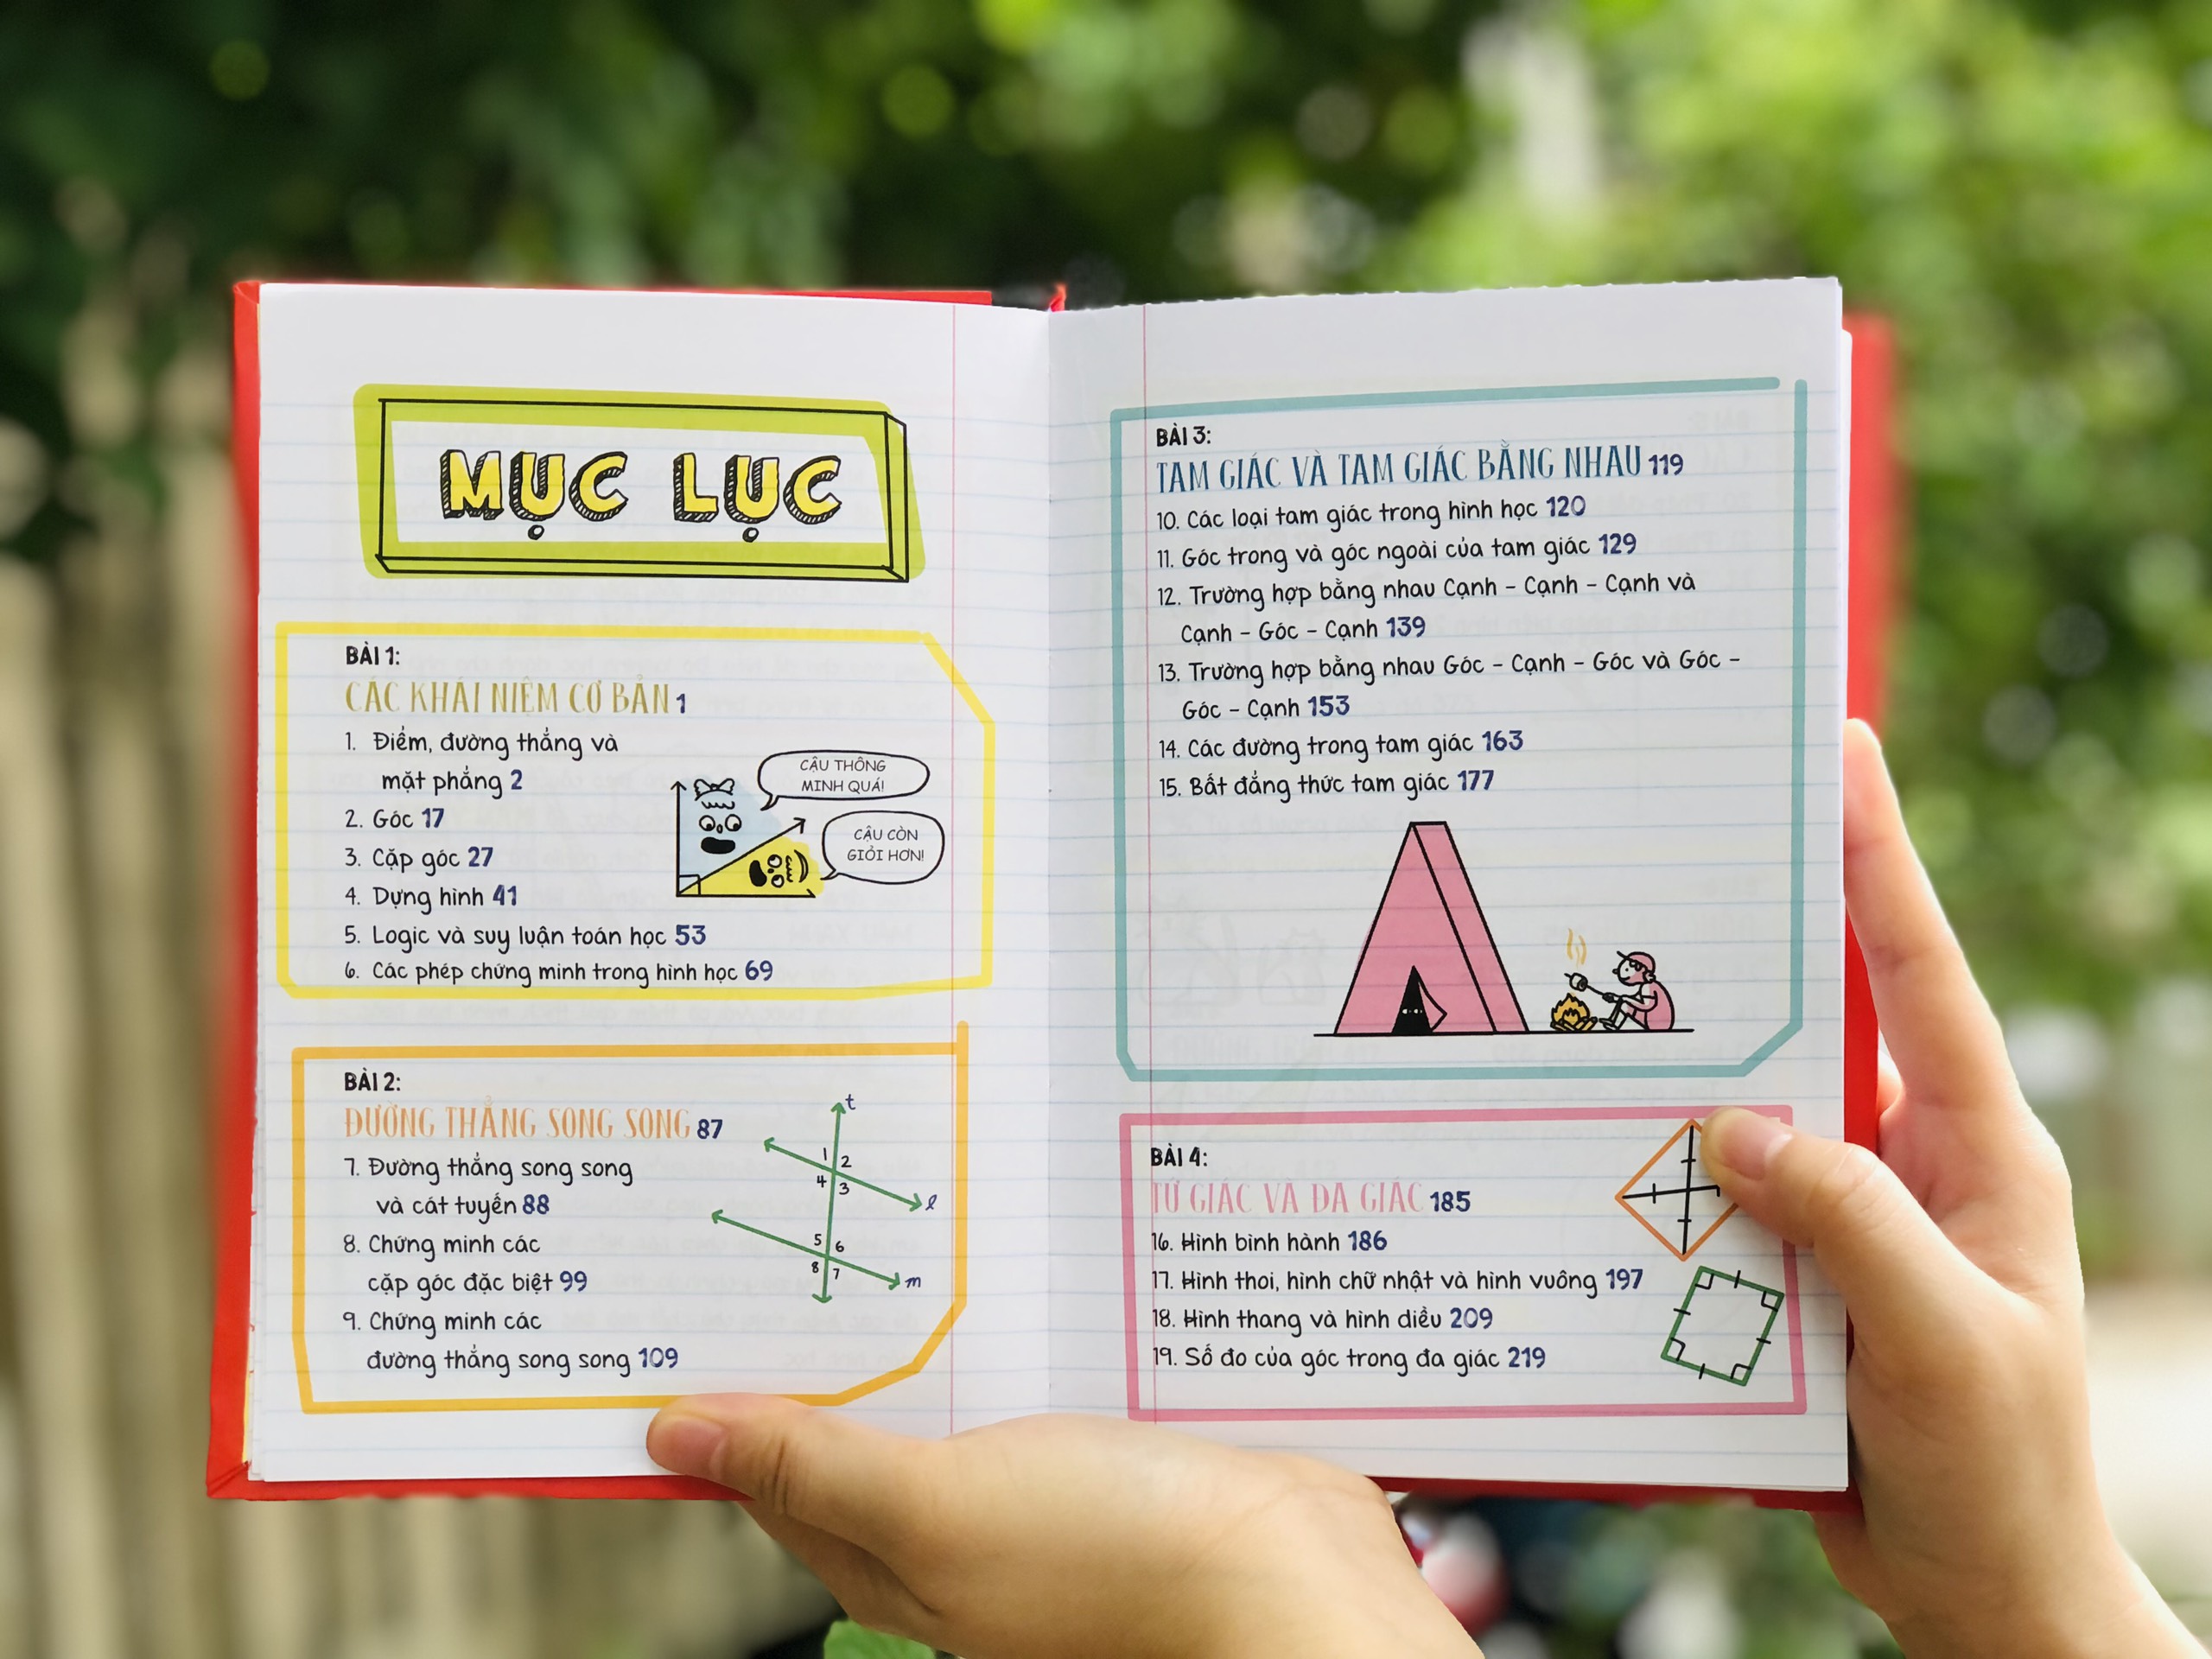 MỤC LỤC
BÀI 1:
CÁC KHÁI NIỆM CƠ BẢN 1
1. Điểm, đường thẳng và
mặt phẳng 2
2. Góc 17
3. Cặp góc 27
4. Dựng hình 41
5. Logic và suy luận toán học 53
6. Các phép chứng minh trong hình học 69
CẬU THÔNG
MINH QUÁ!
CẬU CÒN
GIỎI HƠN!
BÀI 2:
ĐƯỜNG THẲNG SONG SONG 87
7. Đường thẳng song song
và cát tuyến 88
8. Chứng minh các
cặp góc đặc biệt 99
9. Chứng minh các
đường thẳng song song 109
t
1 2
4 3
l
5 6
8 7
m
BÀI 3:
TAM GIÁC VÀ TAM GIÁC BẰNG NHAU 119
10. Các loại tam giác trong hình học 120
11. Góc trong và góc ngoài của tam giác 129
12. Trường hợp bằng nhau Cạnh – Cạnh – Cạnh và
Cạnh – Góc – Cạnh 139
13. Trường hợp bằng nhau Góc – Cạnh – Góc và Góc –
Góc – Cạnh 153
14. Các đường trong tam giác 163
15. Bất đẳng thức tam giác 177
BÀI 4:
TỨ GIÁC VÀ ĐA GIÁC 185
16. Hình bình hành 186
17. Hình thoi, hình chữ nhật và hình vuông 197
18. Hình thang và hình diều 209
19. Số đo của góc trong đa giác 219